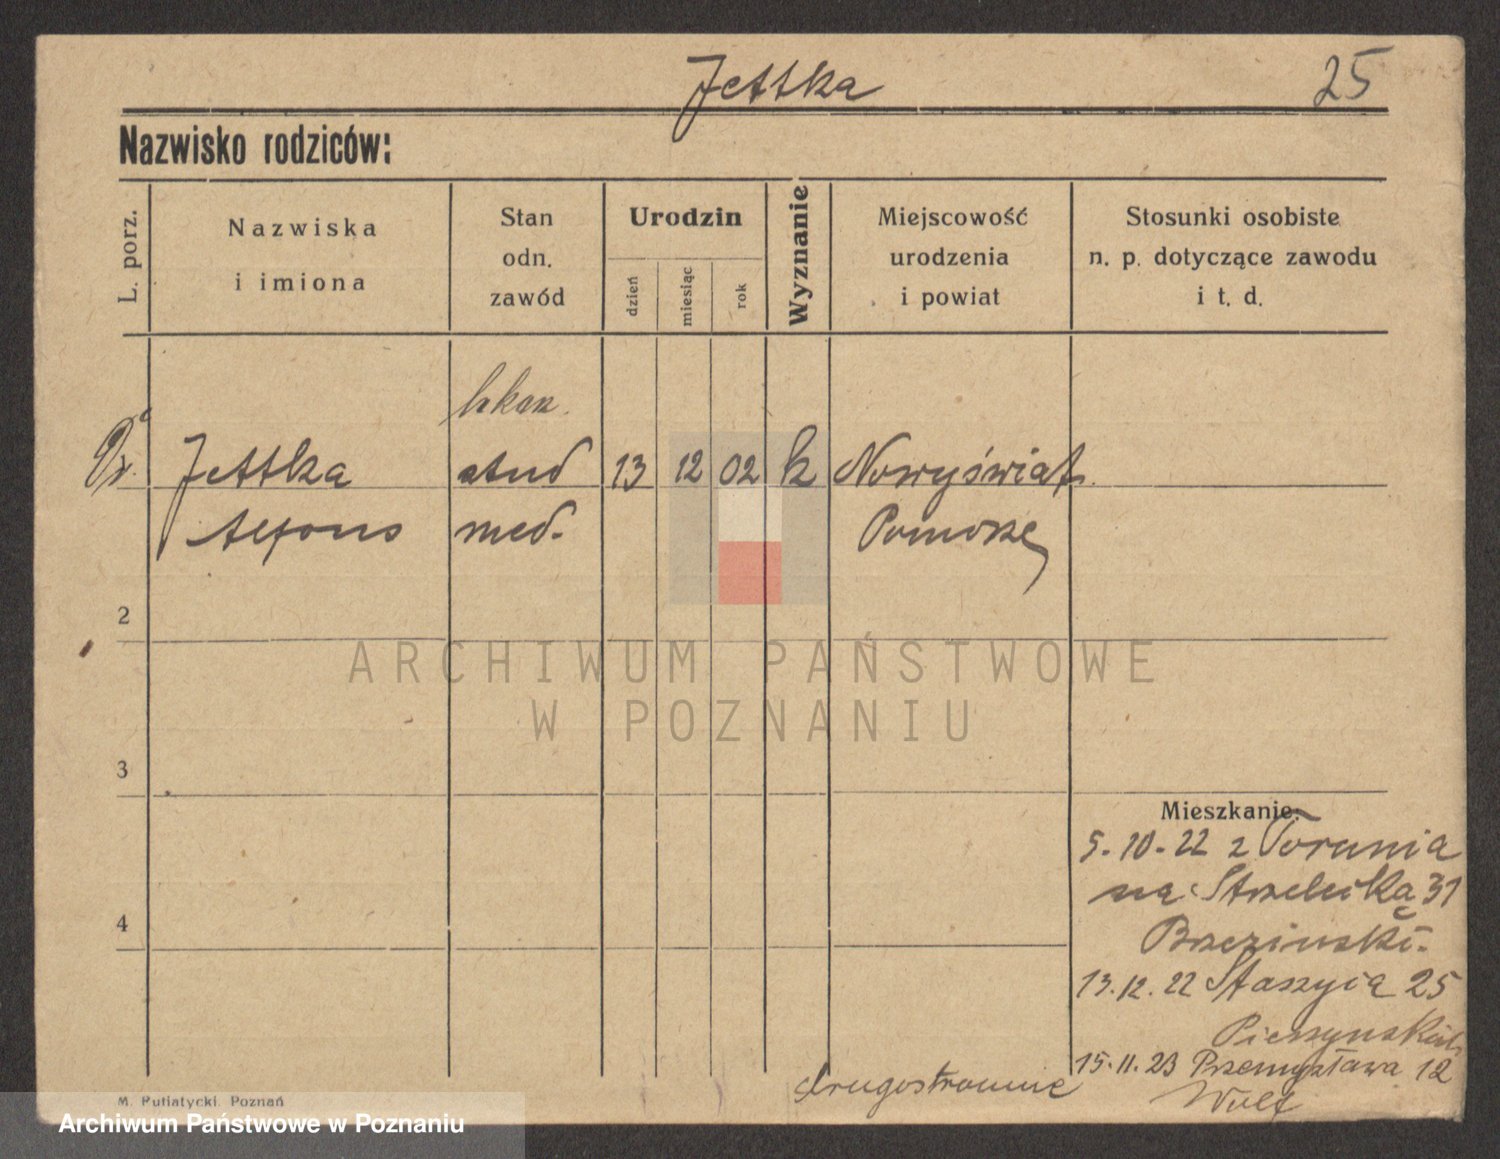 Jettka
25
Nazwisko rodziców:
L. porz.
Nazwiska
i imiona
Stan
odn.
zawód
Urodzin
dzień
miesiąc
rok
Wyznanie
Miejscowość
urodzenia
i powiat
Stosunki osobiste
n. p. dotyczące zawodu
i t. d.
Dr. Jettka stud 13 12 02 k Nowyświat
Alfons med. Pomorze
2
3
4
ARCHIWUM PAŃSTWOWE
W POZNANIU
Mieszkanie:
5.10.22 z Torunia
na Strzelecką 31
Brzezinski.
13.12.22 Staszyca 25
15.11.23 Przemysława 12
Wulf
drugostronnie
M. Putiatycki, Poznań
Archiwum Państwowe w Poznaniu